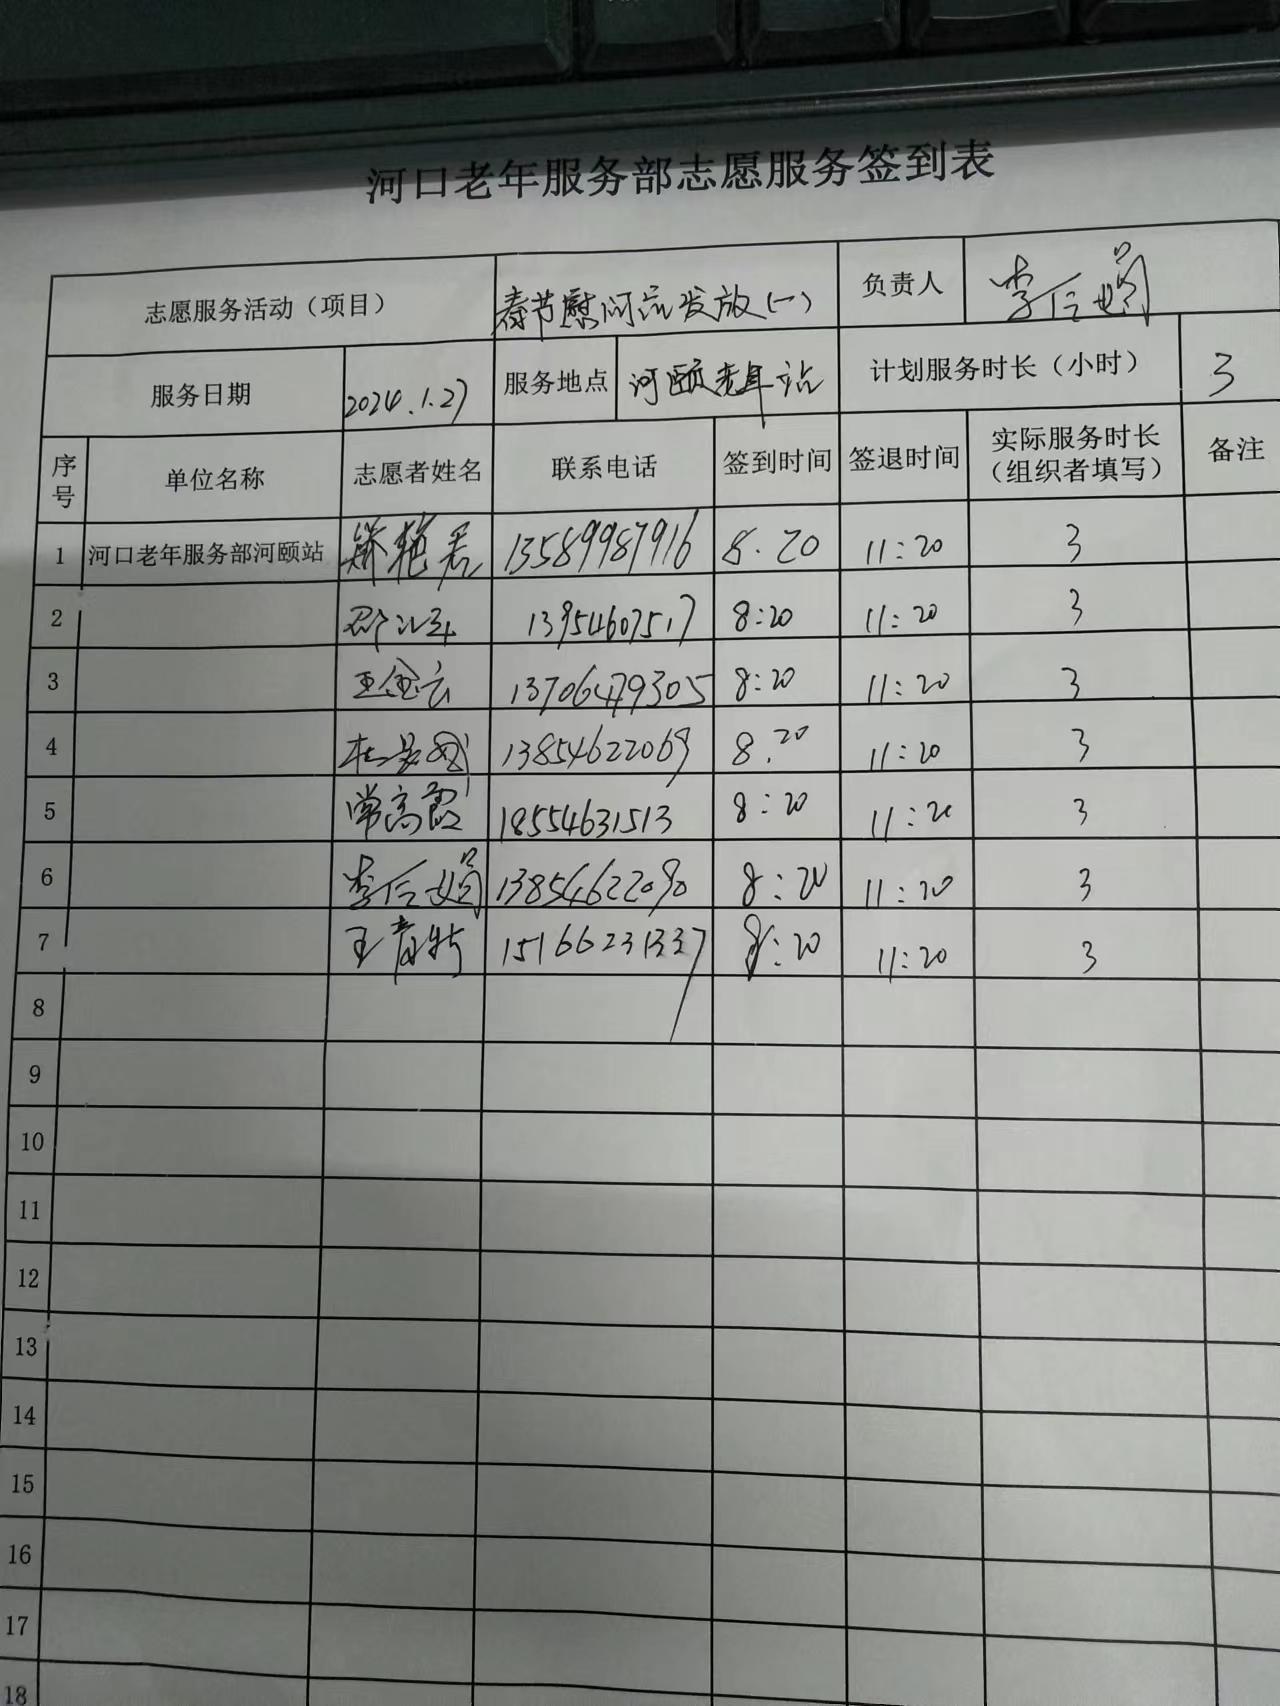 河口老年服务部志愿服务签到表
志愿服务活动（项目） 春节慰问品发放(一) 负责人 李信娟
服务日期 2024.1.27 服务地点 河颐老年站 计划服务时长（小时） 3
序号 单位名称 志愿者姓名 联系电话 签到时间 签退时间 实际服务时长（组织者填写） 备注
1 河口老年服务部河颐站 艳君 13589987916 8.20 11:20 3
2 13954607517 8:20 11:20 3
3 王金云 13706479305 8:20 11:20 3
4 杜 13854622069 8.20 11:20 3
5 常高霞 18554631513 8:20 11:20 3
6 李信娟 13854622090 8:20 11:20 3
7 王 15166231337 8:20 11:20 3
8
9
10
11
12
13
14
15
16
17
18